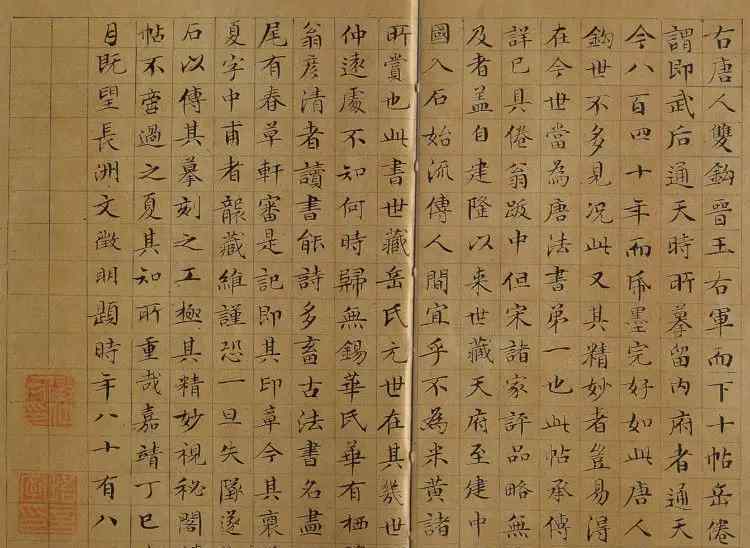 右唐人雙鈎晉王右軍而下十帖岳倦
謂即武后通天時所摹留内府者通天
今八百四十年而帋墨完好如此唐人
鈎世不多見況此又其精妙者豈易得
在今世當為唐法書第一也此帖承傳
詳已具倦翁跋中但宋諸家評品略無
及者盖自建隆以来世藏天府至建中
國入石始流傳人間宜乎不為米黄諸
所賞也此書世藏岳氏元世在其幾世
仲遠處不知何時歸無錫華氏華有栖
翁彦清者讀書能詩多畜古法書名畫
尾有春草軒審是記即其印章今其裔
夏字中甫者襲藏維謹恐一旦失墜遂
石以傳其摹刻之工極其精妙視秘閣
帖不啻過之夏其知所重哉嘉靖丁巳
月既望長洲文徵明題時年八十有八